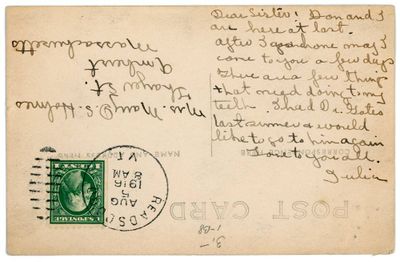 Dear Sister: Don and I
are here at last.
After I am gone may I
come to you a few days
There are a few things
that need doing to my
teeth. I had Dr. Gates
last summer & would
like to go to him again
Love to you all.
Julia
Mrs. Mary P. S. Holmes
Thayer St.
Amherst
Massachusetts
CORRESPONDENCE HERE
NAME AND ADDRESS HERE
POST CARD
READSBORO
AUG
5
8 AM
1916
VT.
U.S. POSTAGE
3.-
1-08